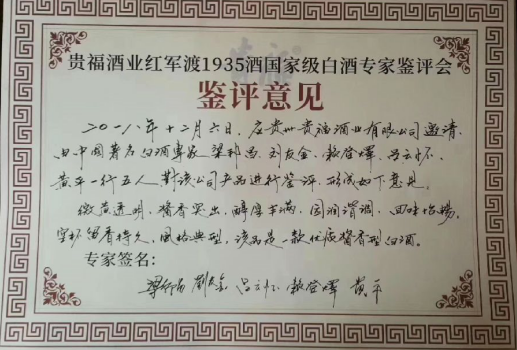 贵福酒业红军渡1935酒国家级白酒专家鉴评会
鉴评意见
二〇一八年十二月六日,应贵州贵福酒业有限公司邀请,
由中国著名白酒专家梁邦昌、刘友金、敖宗辉、吕云怀、
黄平一行五人,对该公司产品进行鉴评,形成如下意见。
微黄透明,酱香突出,醇厚丰满,圆润谐调,回味怡畅,
空杯留香持久,风格典型,该品是一款优质酱香型白酒。
专家签名:
梁邦昌 刘友金 吕云怀 敖宗辉 黄平